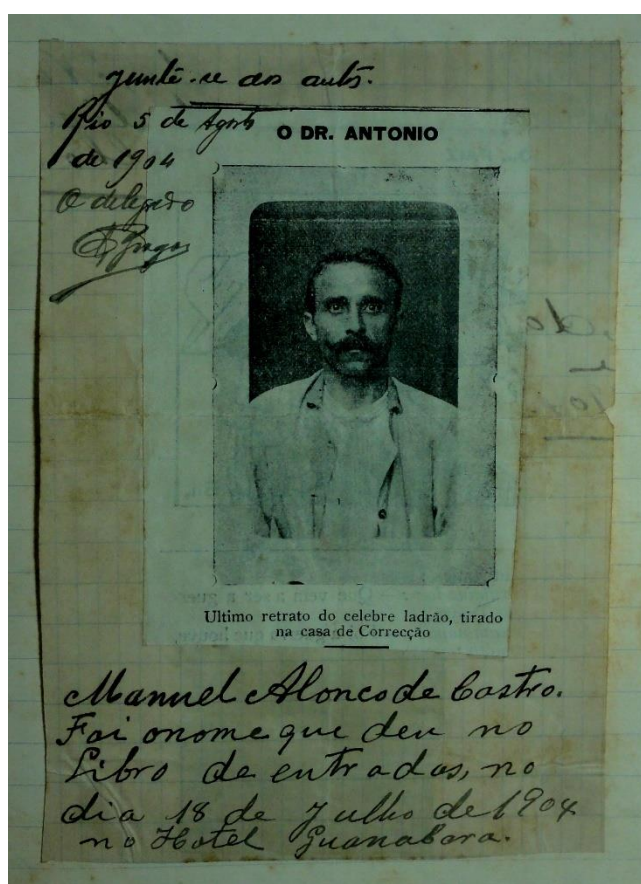 Junte-se aos autos.
Rio 5 de Agosto
de 1904
O delegado
O DR. ANTONIO
Ultimo retrato do celebre ladrão, tirado
na casa de Correcção
Manuel Alonco de Castro.
Foi o nome que deu no
Libro de entradas, no
dia 18 de Julho de 1904
no Hotel Guanabara.